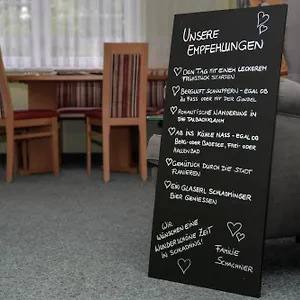 UNSERE
EMPFEHLUNGEN
DEN TAG MIT EINEM LECKEREM
FRÜHSTÜCK STARTEN
BERGLUFT SCHNUPPERN - EGAL OB
ZU FUSS ODER MIT DER GONDEL
ROMANTISCHE WANDERUNG IN
DIE TALBACHKLAMM
AB INS KÜHLE NASS - EGAL OB
BERG- ODER BADESEE, FREI- ODER
HALLENBAD
GEMÜTLICH DURCH DIE STADT
FLANIEREN
EIN GLASERL SCHLADMINGER
BIER GENIESSEN
WIR
WÜNSCHEN EINE
WUNDERSCHÖNE ZEIT
IN SCHLADMING!
FAMILIE
SCHACHNER